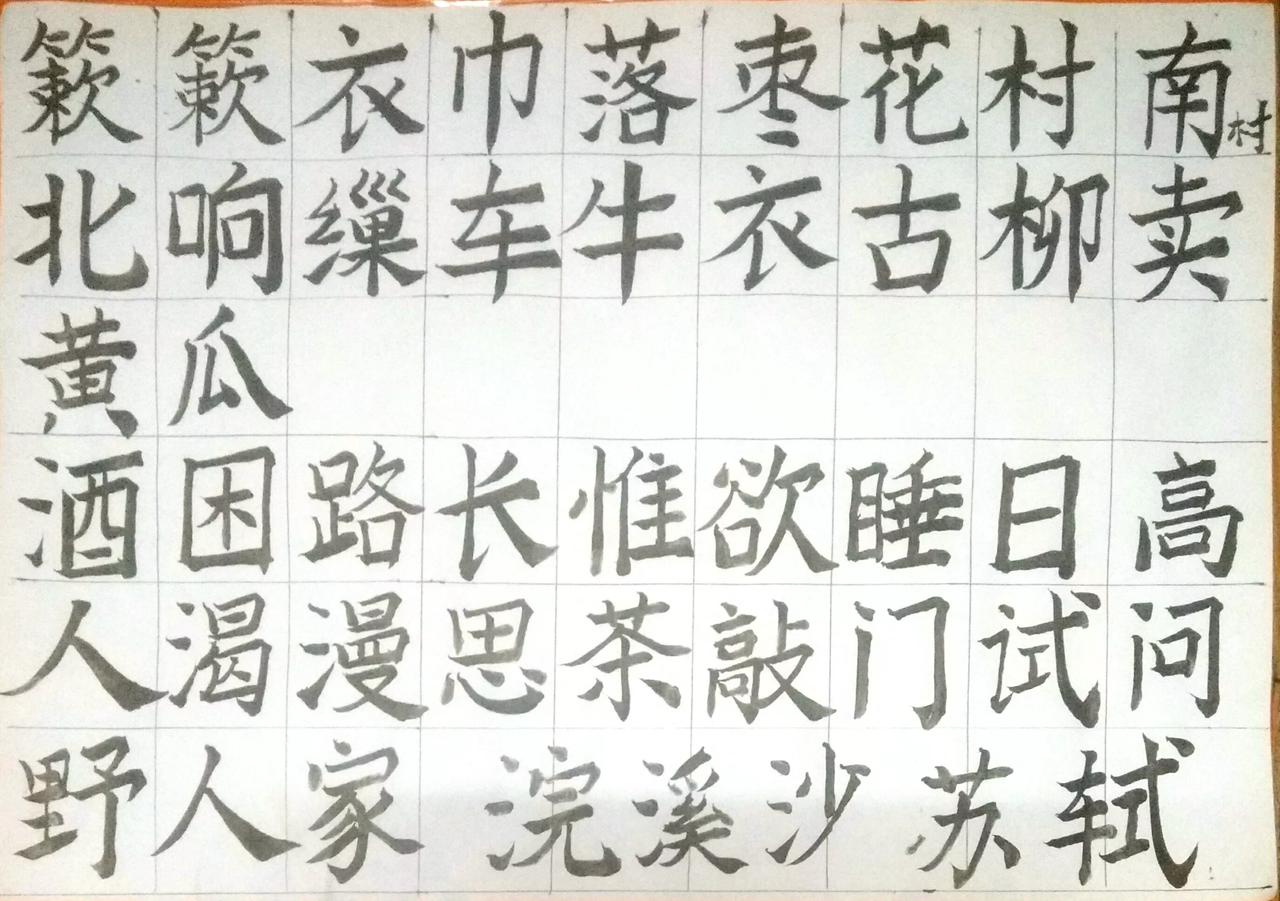 簌簌衣巾落枣花村南村
北响缫车牛衣古柳卖
黄瓜
酒困路长惟欲睡日高
人渴漫思茶敲门试问
野人家 浣溪沙 苏轼